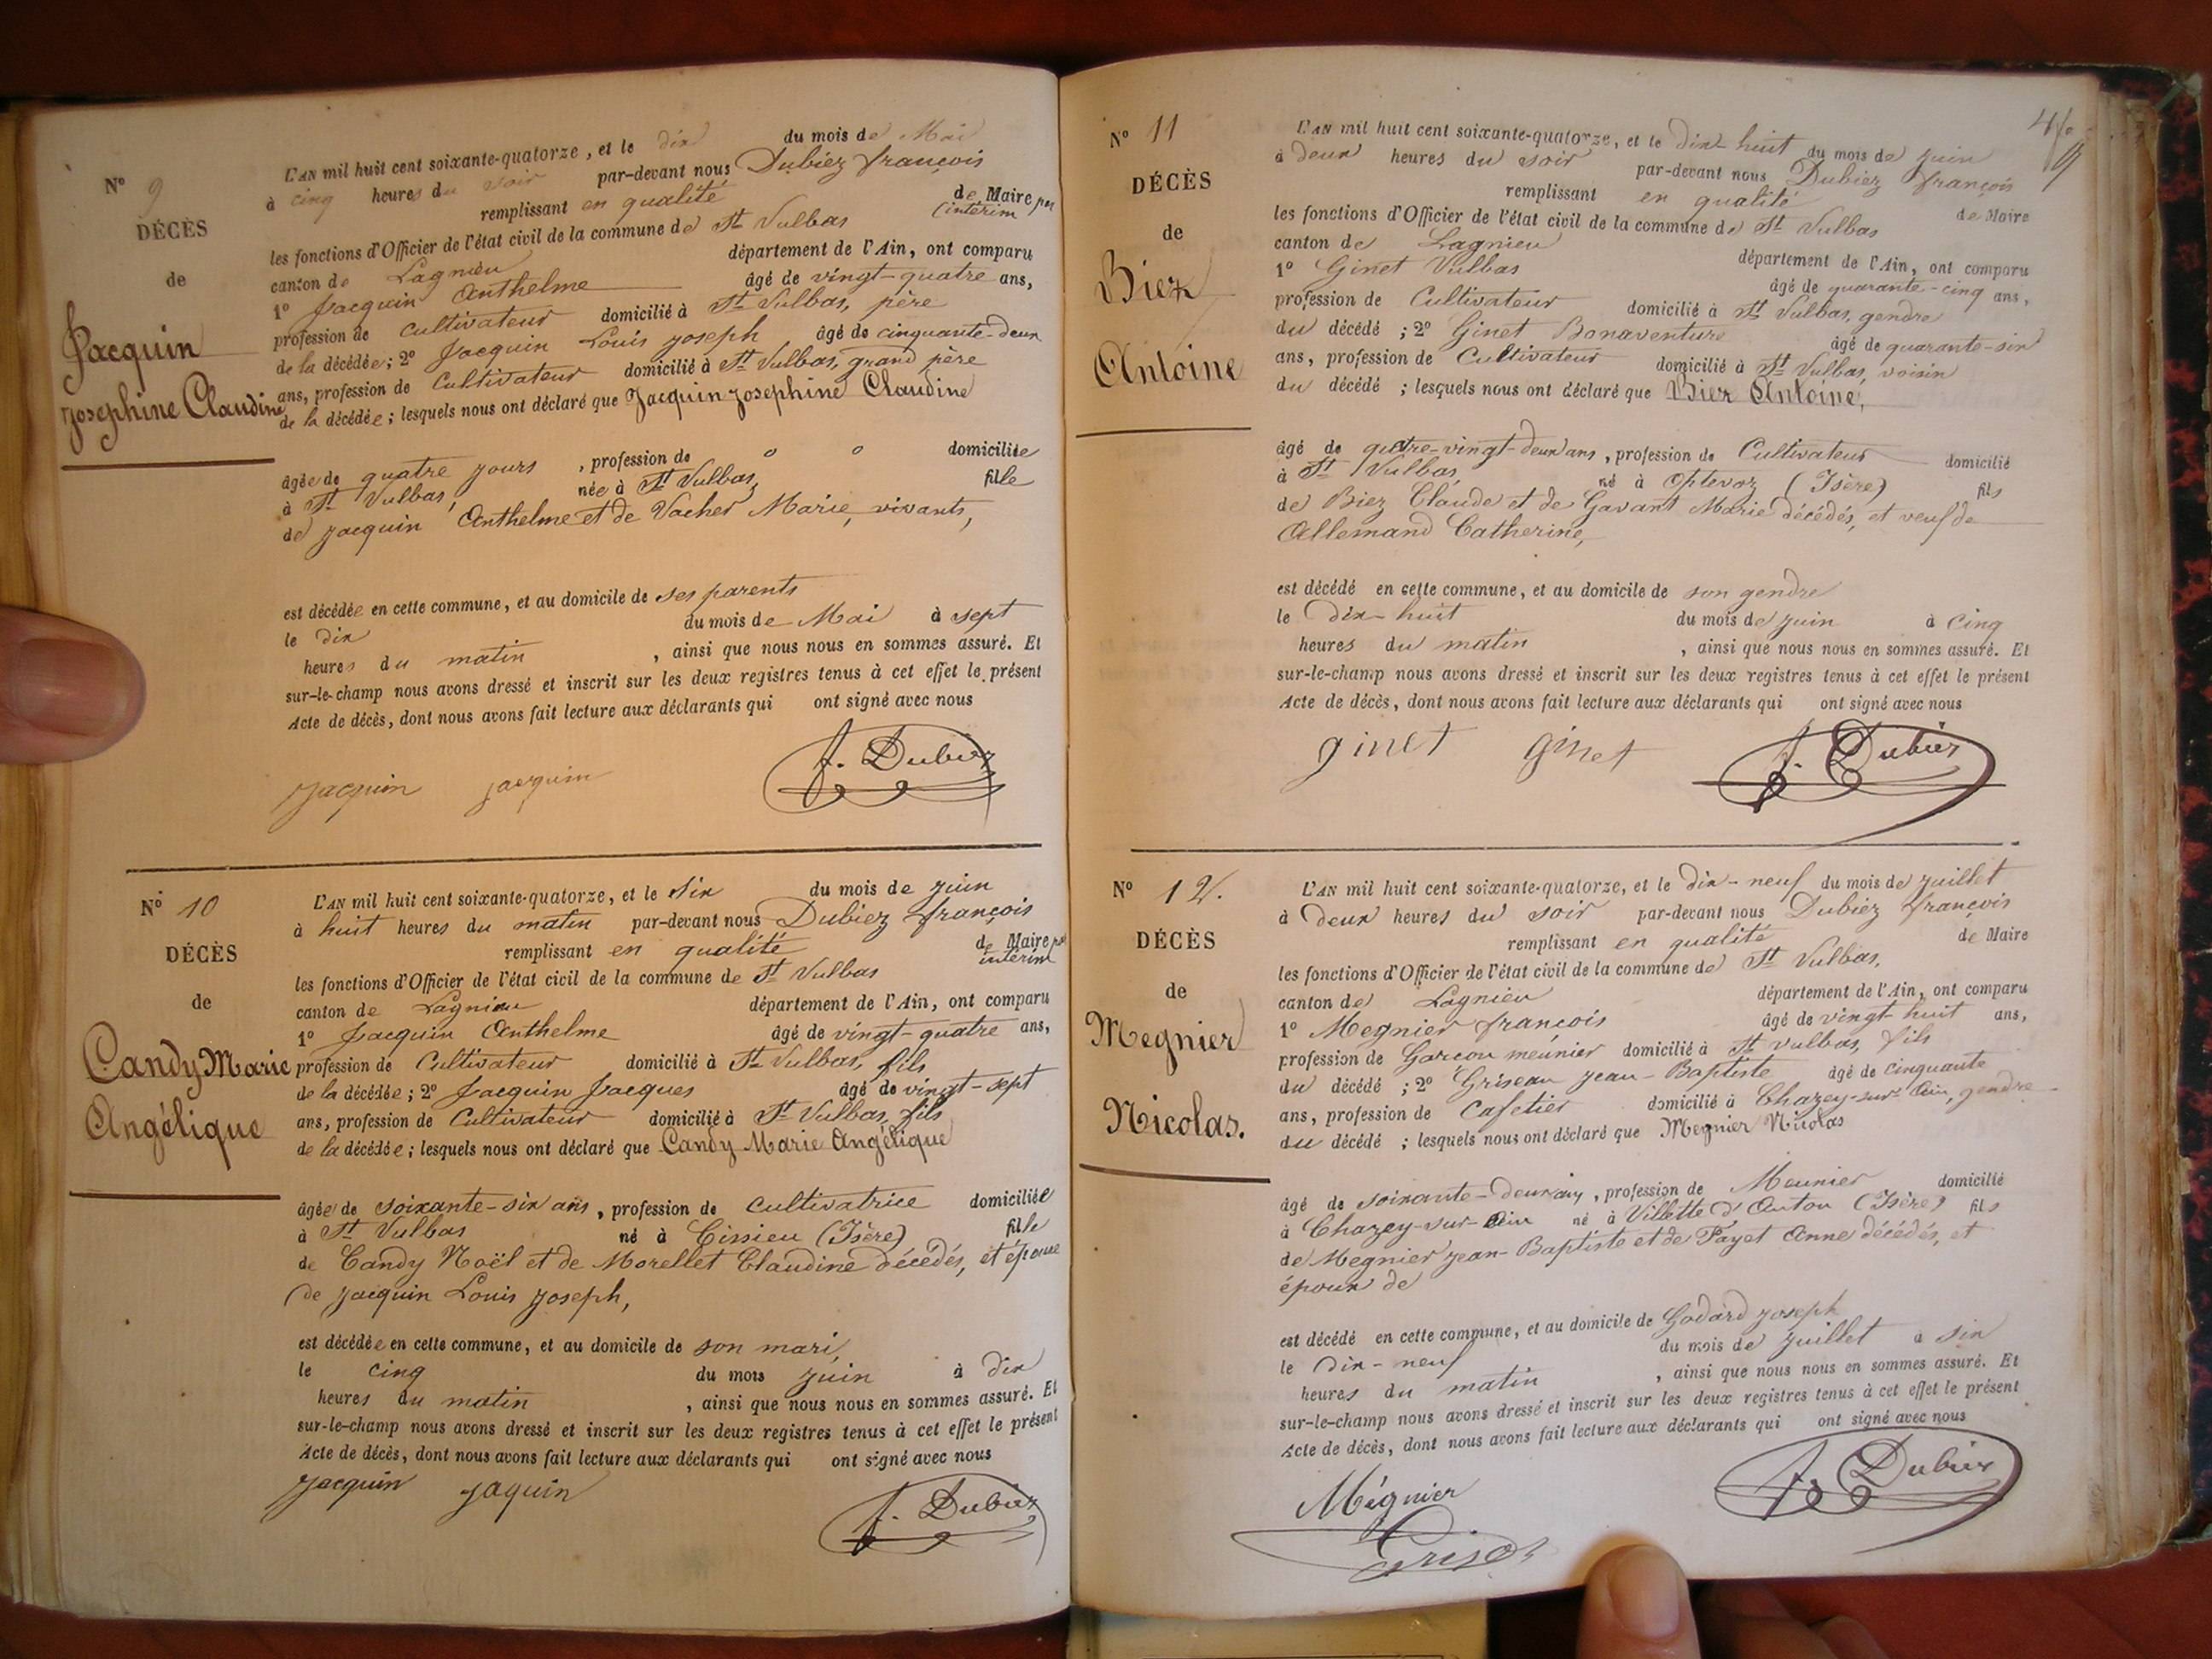 N° 9
DÉCÈS
de
Jacquin
Josephine Claudine
L'AN mil huit cent soixante-quatorze, et le dix du mois de Mai
à cinq heures du soir par-devant nous Dubiez françois
remplissant en qualité de Maire par
l'intérim
les fonctions d'Officier de l'état civil de la commune de St Vulbas
canton de Lagnieu département de l'Ain, ont comparu
1° Jacquin Anthelme âgé de vingt-quatre ans,
profession de cultivateur domicilié à St Vulbas, père
de la décédée; 2° Jacquin Louis joseph âgé de cinquante-deux
ans, profession de Cultivateur domicilié à St Vulbas, grand père
de la décédée; lesquels nous ont déclaré que Jacquin Josephine Claudine
âgée de quatre jours, profession de " " domiciliée
à St Vulbas, née à St Vulbas, fille
de jacquin Anthelme et de Vacher Marie, vivants,
est décédée en cette commune, et au domicile de ses parents
le dix du mois de Mai à sept
heures du matin, ainsi que nous nous en sommes assuré. Et
sur-le-champ nous avons dressé et inscrit sur les deux registres tenus à cet effet le présent
Acte de décès, dont nous avons fait lecture aux déclarants qui ont signé avec nous
Jacquin jacquin f. Dubiez
N° 10
DÉCÈS
de
Candy Marie
Angélique
L'AN mil huit cent soixante-quatorze, et le six du mois de juin
à huit heures du matin par-devant nous Dubiez françois
remplissant en qualité de Maire par
intérim
les fonctions d'Officier de l'état civil de la commune de St Vulbas
canton de Lagnieu département de l'Ain, ont comparu
1° Jacquin Anthelme âgé de vingt-quatre ans,
profession de Cultivateur domicilié à St Vulbas, fils
de la décédée; 2° Jacquin Jacques âgé de vingt-sept
ans, profession de Cultivateur domicilié à St Vulbas, fils
de la décédée; lesquels nous ont déclaré que Candy Marie Angélique
âgée de soixante-six ans, profession de cultivatrice domiciliée
à St Vulbas né à Cissieu (Isère) fille
de Candy Noël et de Morellet Claudine décédés, et épouse
de jacquin Louis joseph,
est décédée en cette commune, et au domicile de son mari,
le cinq du mois juin à dix
heures du matin, ainsi que nous nous en sommes assuré. Et
sur-le-champ nous avons dressé et inscrit sur les deux registres tenus à cet effet le présent
Acte de décès, dont nous avons fait lecture aux déclarants qui ont signé avec nous
Jacquin jaquin f. Dubiez
N° 11
DÉCÈS
de
Biez
Antoine
L'AN mil huit cent soixante-quatorze, et le dix-huit du mois de juin
à deux heures du soir par-devant nous Dubiez françois
remplissant en qualité de Maire
les fonctions d'Officier de l'état civil de la commune de St Vulbas
canton de Lagnieu département de l'Ain, ont comparu
1° Ginet Vulbas âgé de quarante-cinq ans,
profession de Cultivateur domicilié à St Vulbas, gendre
du décédé; 2° Ginet Bonaventure âgé de quarante-six
ans, profession de Cultivateur domicilié à St Vulbas, voisin
du décédé; lesquels nous ont déclaré que Biez Antoine,
âgé de quatre-vingt-deux ans, profession de Cultivateur domicilié
à St Vulbas né à Optevoz (Isère) fils
de Biez Claude et de Gavant Marie décédés, et veuf de
Allemand Catherine,
est décédé en cette commune, et au domicile de son gendre
le dix-huit du mois de juin à cinq
heures du matin, ainsi que nous nous en sommes assuré. Et
sur-le-champ nous avons dressé et inscrit sur les deux registres tenus à cet effet le présent
Acte de décès, dont nous avons fait lecture aux déclarants qui ont signé avec nous
ginet ginet f. Dubiez
N° 12.
DÉCÈS
de
Megnier
Nicolas.
L'AN mil huit cent soixante-quatorze, et le dix-neuf du mois de juillet
à deux heures du soir par-devant nous Dubiez françois
remplissant en qualité de Maire
les fonctions d'Officier de l'état civil de la commune de St Vulbas,
canton de Lagnieu département de l'Ain, ont comparu
1° Megnier françois âgé de vingt huit ans,
profession de Garçon meunier domicilié à St vulbas, fils
du décédé; 2° Griseau jean-Baptiste âgé de cinquante
ans, profession de Cafetier domicilié à Chazey-sur-Ain, gendre
du décédé; lesquels nous ont déclaré que Megnier Nicolas
âgé de soixante-deux ans, profession de Meunier domicilié
à Chazey-sur-Ain né à Villette d'Anton (Isère) fils
de Megnier jean-Baptiste et de Payet Anne décédés, et
époux de
est décédé en cette commune, et au domicile de Godard joseph
le dix-neuf du mois de juillet à six
heures du matin, ainsi que nous nous en sommes assuré. Et
sur-le-champ nous avons dressé et inscrit sur les deux registres tenus à cet effet le présent
Acte de décès, dont nous avons fait lecture aux déclarants qui ont signé avec nous
Mégnier f. Dubiez